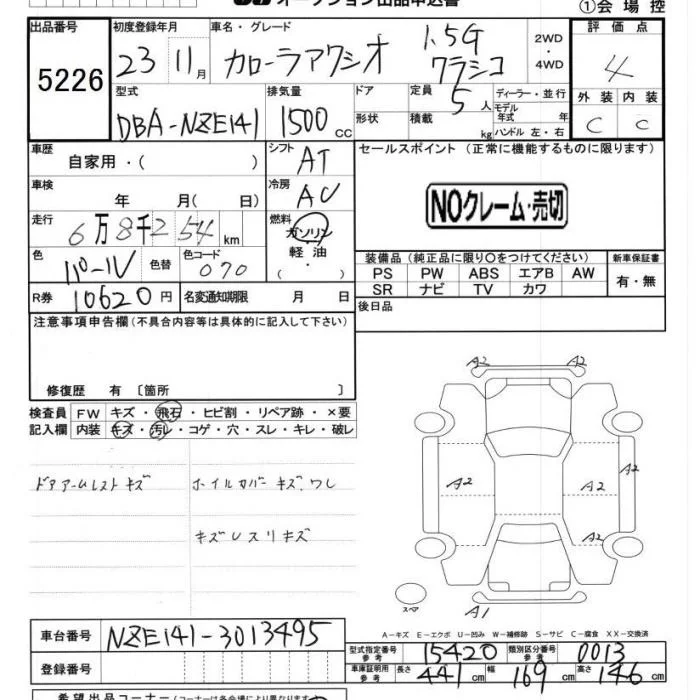 オークション出品申込書
①会場控
出品番号 初度登録年月 車名・グレード 評価点
5226 23 11月 カローラアクシオ 1.5G クラシコ 2WD ・ 4WD 4
型式 排気量 ドア 定員 ディーラー・並行 外装 内装
DBA-NZE141 1500 CC 5人 モデル年式 年 C C
形状 積載 kg ハンドル 左・右
車歴 自家用・( ) シフト AT セールスポイント (正常に機能するものに限ります)
車検 年 月( 日) 冷房 AC
NOクレーム・売切
走行 6万8千254km 燃料 ガソリン 軽油 ( ・ )
色 パール 色替 色コード 070
装備品(純正品に限り○をつけてください) 新車保証書
PS PW ABS エアB AW 有・無
SR ナビ TV カワ
R券 10620円 名変通知期限 月 日
後日品
注意事項申告欄(不具合内容等は具体的に記入して下さい)
修復歴 有 〔箇所 〕
検査員 FW キズ・飛石・ヒビ割・リペア跡・×要
記入欄 内装 キズ・汚レ・コゲ・穴・スレ・キレ・破レ
ドアアームレストキズ ホイルカバーキズ、ワレ
キズUスリキズ
A2 A2
A2
A2 A2
A2
A1
スペア
A-キズ E-エクボ U-凹み W-補修跡 S-サビ C-腐食 XX-交換済
車台番号 NZE141-3013495
型式指定番号 参考 15420 類別区分番号 参考 0013
登録番号
車庫証明用 参考 長さ 441cm 幅 169cm 高さ 146cm
希望出品コーナー